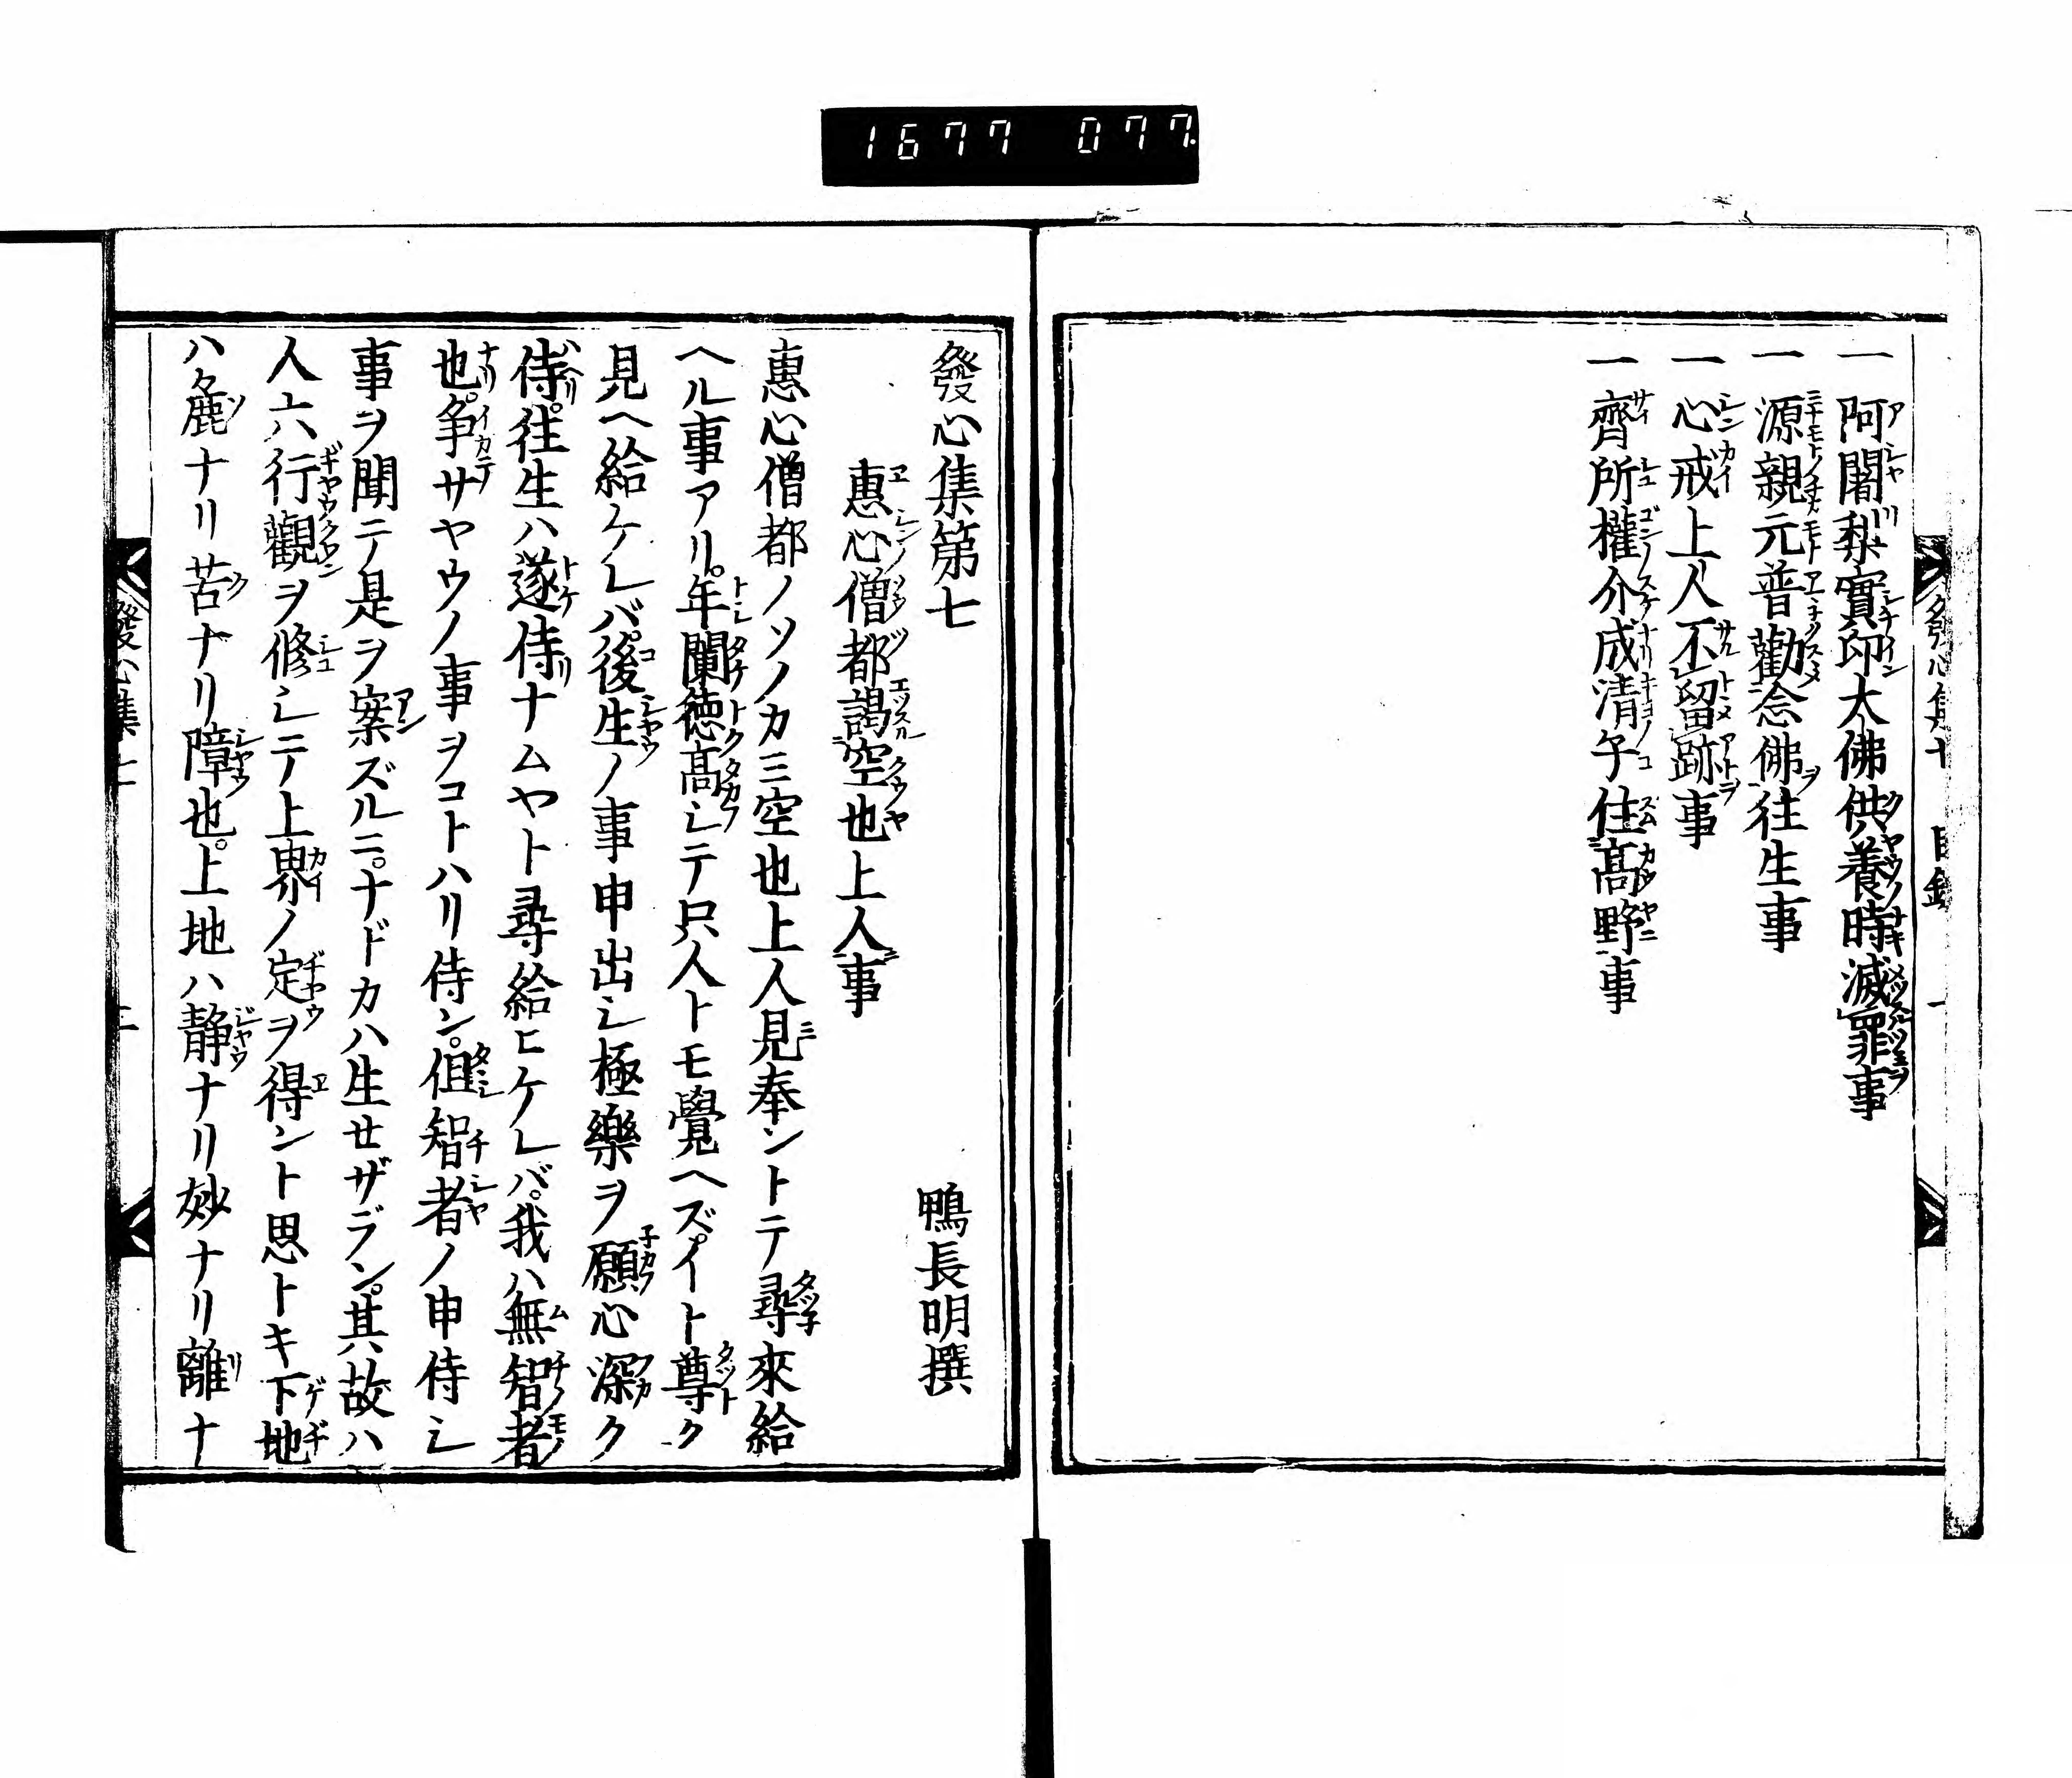 1677 077
一 阿闍梨實印大佛供養時滅罪事
一 源親元普勸念佛往生事
一 心戒上人不留跡事
一 齊所權介成清子住髙野事
發心集第七
鴨長明撰
惠心僧都謁空也上人事
惠心僧都ノソノカミ空也上人見奉ントテ尋來給
ヘル事アリ。年闌徳髙シテ只人トモ覺ヘズ。イト尊ク
見ヘ給ケレバ。後生ノ事申出シ極樂ヲ願心深ク
侍。往生ハ遂侍ナムヤト尋給ヒケレバ。我ハ無智者
也。争サヤウノ事ヲコトハリ侍ン。但智者ノ申侍シ
事ヲ聞テ是ヲ案ズルニ。ナドカハ生セザラン。其故ハ
人六行觀ヲ修シテ上界ノ定ヲ得ント思トキ下地
ハ麁ナリ苦ナリ障也。上地ハ静ナリ妙ナリ離ナ
發心集七
二